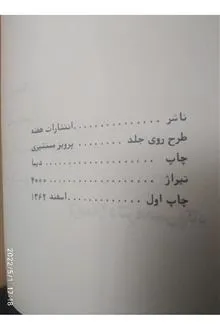 ناشر . . . . . . . . . . . . انتشارات هفته
طرح روی جلد . . . . . . . . پرویز
چاپ . . . . . . . . . . . . دیبا
تیراژ . . . . . . . . . . . . ۴۰۰۰
چاپ اول . . . . . . . . اسفند ۱۳۶۲
2022/5/1 17:18